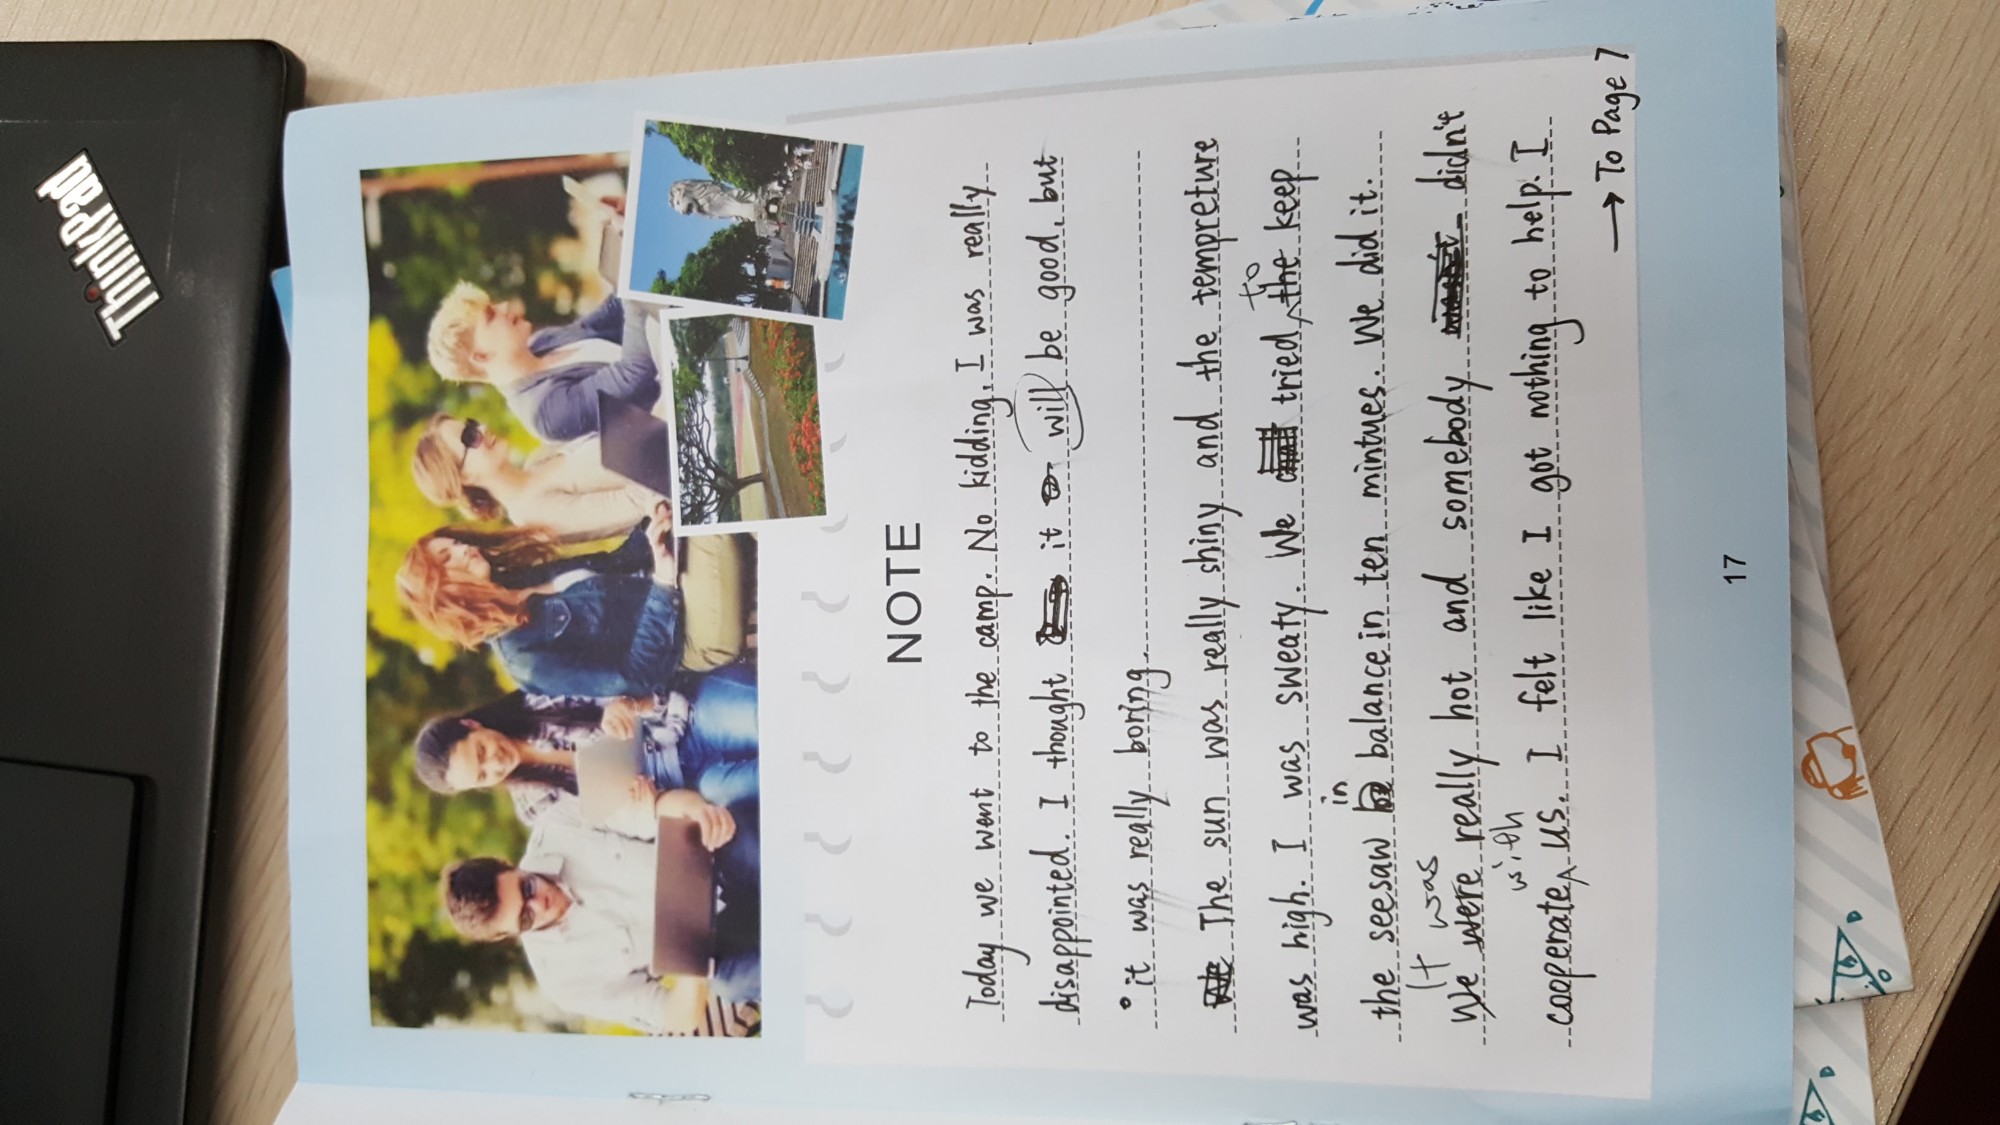 ThinkPad
NOTE
Today we went to the camp. No kidding, I was really
disappointed. I thought it will be good, but
it was really boring.
The sun was really shiny and the tempreture
to
was high. I was sweaty. We tried the keep
in
the seesaw balance in ten mintues. We did it.
It was
We were really hot and somebody didn't
with
cooperate us. I felt like I got nothing to help. I
→ To Page 7
17